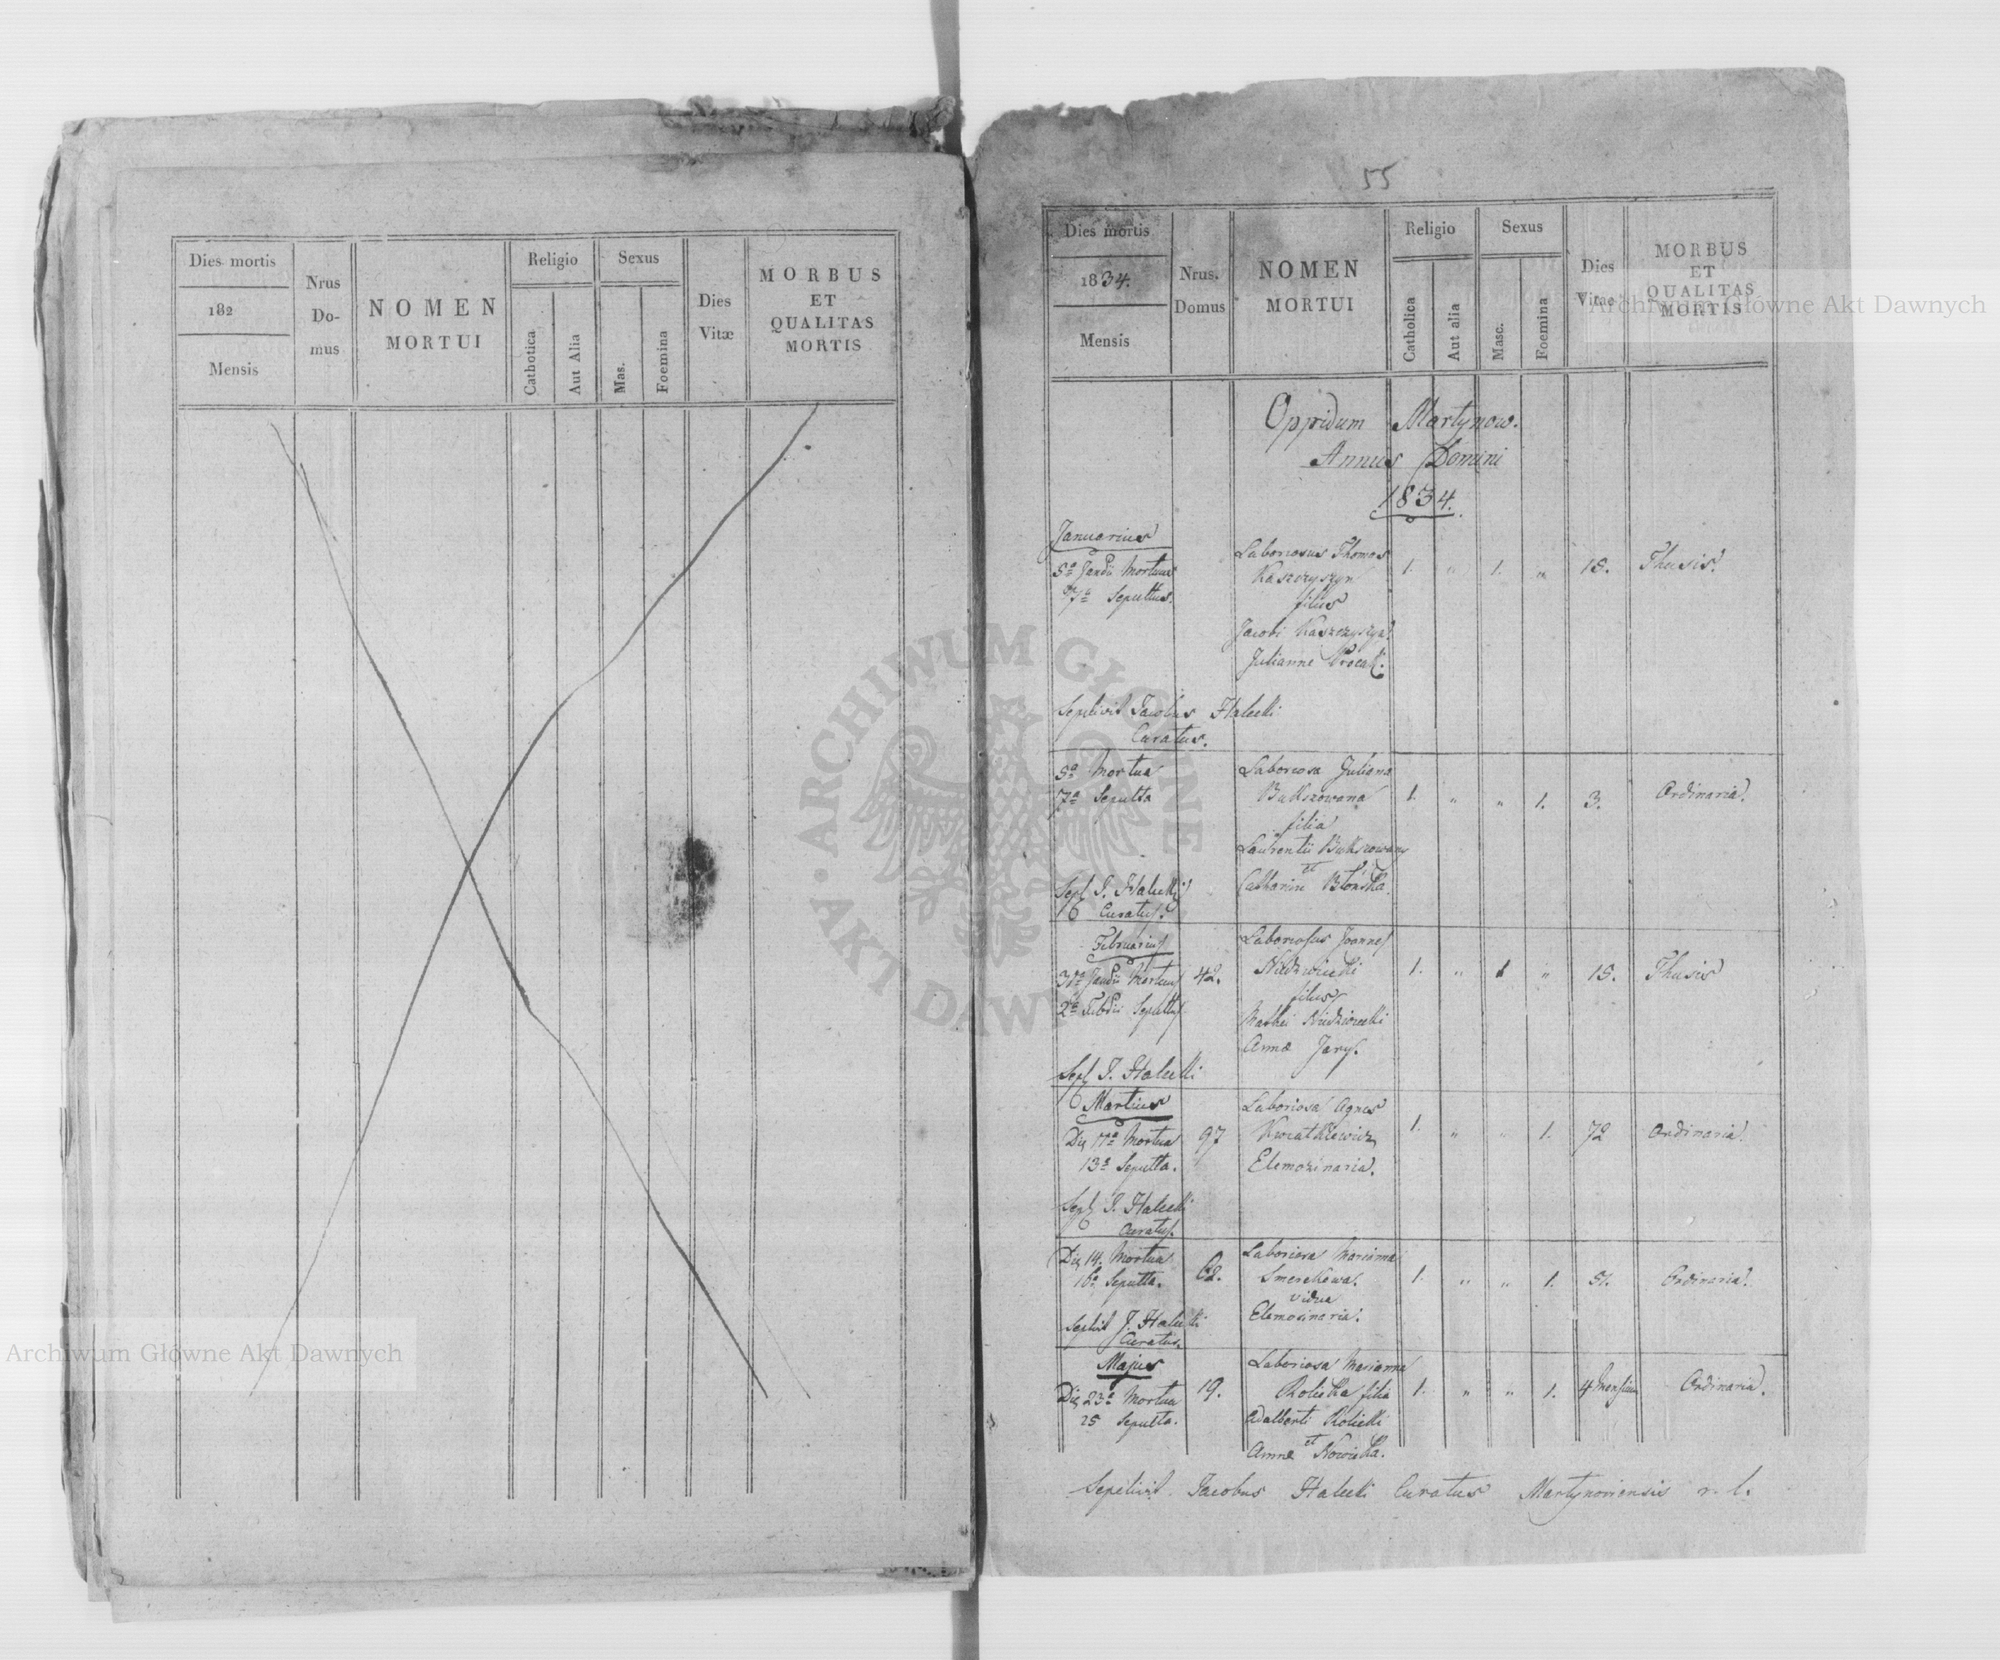 Dies mortis
182
Mensis
Nrus
Do-
mus
NOMEN
MORTUI
Religio
Cathotica
Aut Alia
Sexus
Mas.
Foemina
Dies
Vitæ
MORBUS
ET
QUALITAS
MORTIS
55
Dies mortis
1834.
Mensis
Nrus.
Domus
NOMEN
MORTUI
Religio
Catholica
Aut alia
Sexus
Masc.
Foemina
Dies
Vitae
MORBUS
ET
QUALITAS
MORTIS
Oppidum Martynow.
Annus Domini
1834.
Januarius
5a Mortuus
7a Sepultus.
Laboriosus Thomas
Kaszczyszyn
filius
Jacobi Kaszczyszyn
Julianne
1. " 1. " 15. Thusis.
Sepelivit Jacobus Halecki
Curatus.
5a Mortua
7a Sepulta
Laboriosa Juliana
Bukszowana
filia
Laurentii Bukszowany
et
Catharine Błońska.
1. " " 1. 3. Ordinaria.
Sepl J. Halecki
Curatus.
Februarius
30a Mortuus
2a Sepultus
42.
Laboriosus Joannes
Niedzwiecki
filius
Mathei Niedzwiecki
Annæ Jary.
1. " 1 " 15. Thusis
Sepl J. Halecki
Martius
Die 11a Mortua
13a Sepulta.
97
Laboriosa Agnes
Kwiatkiewicz
Elemozinaria.
1. " " 1. 72 Ordinaria.
Sepl J. Halecki
Curatus.
Die 14. Mortua
16a Sepulta.
62.
Laboriosa Marianna
Smerekowa.
vidua
Elemosinaria.
1. " " 1. 51. Ordinaria.
Sepelivit J. Halecki
Curatus.
Majus
Die 23a Mortua
25 Sepulta.
19.
Laboriosa Marianna
Rolicka filia
Adalberti Rolicki
et
Annæ Nowicka.
1. " " 1. 4 Mensium Ordinaria.
Sepelivit Jacobus Halecki Curatus Martynoviensis r. l.
ARCHIWUM GŁÓWNE AKT DAWNYCH
Archiwum Główne Akt Dawnych
Archiwum Główne Akt Dawnych